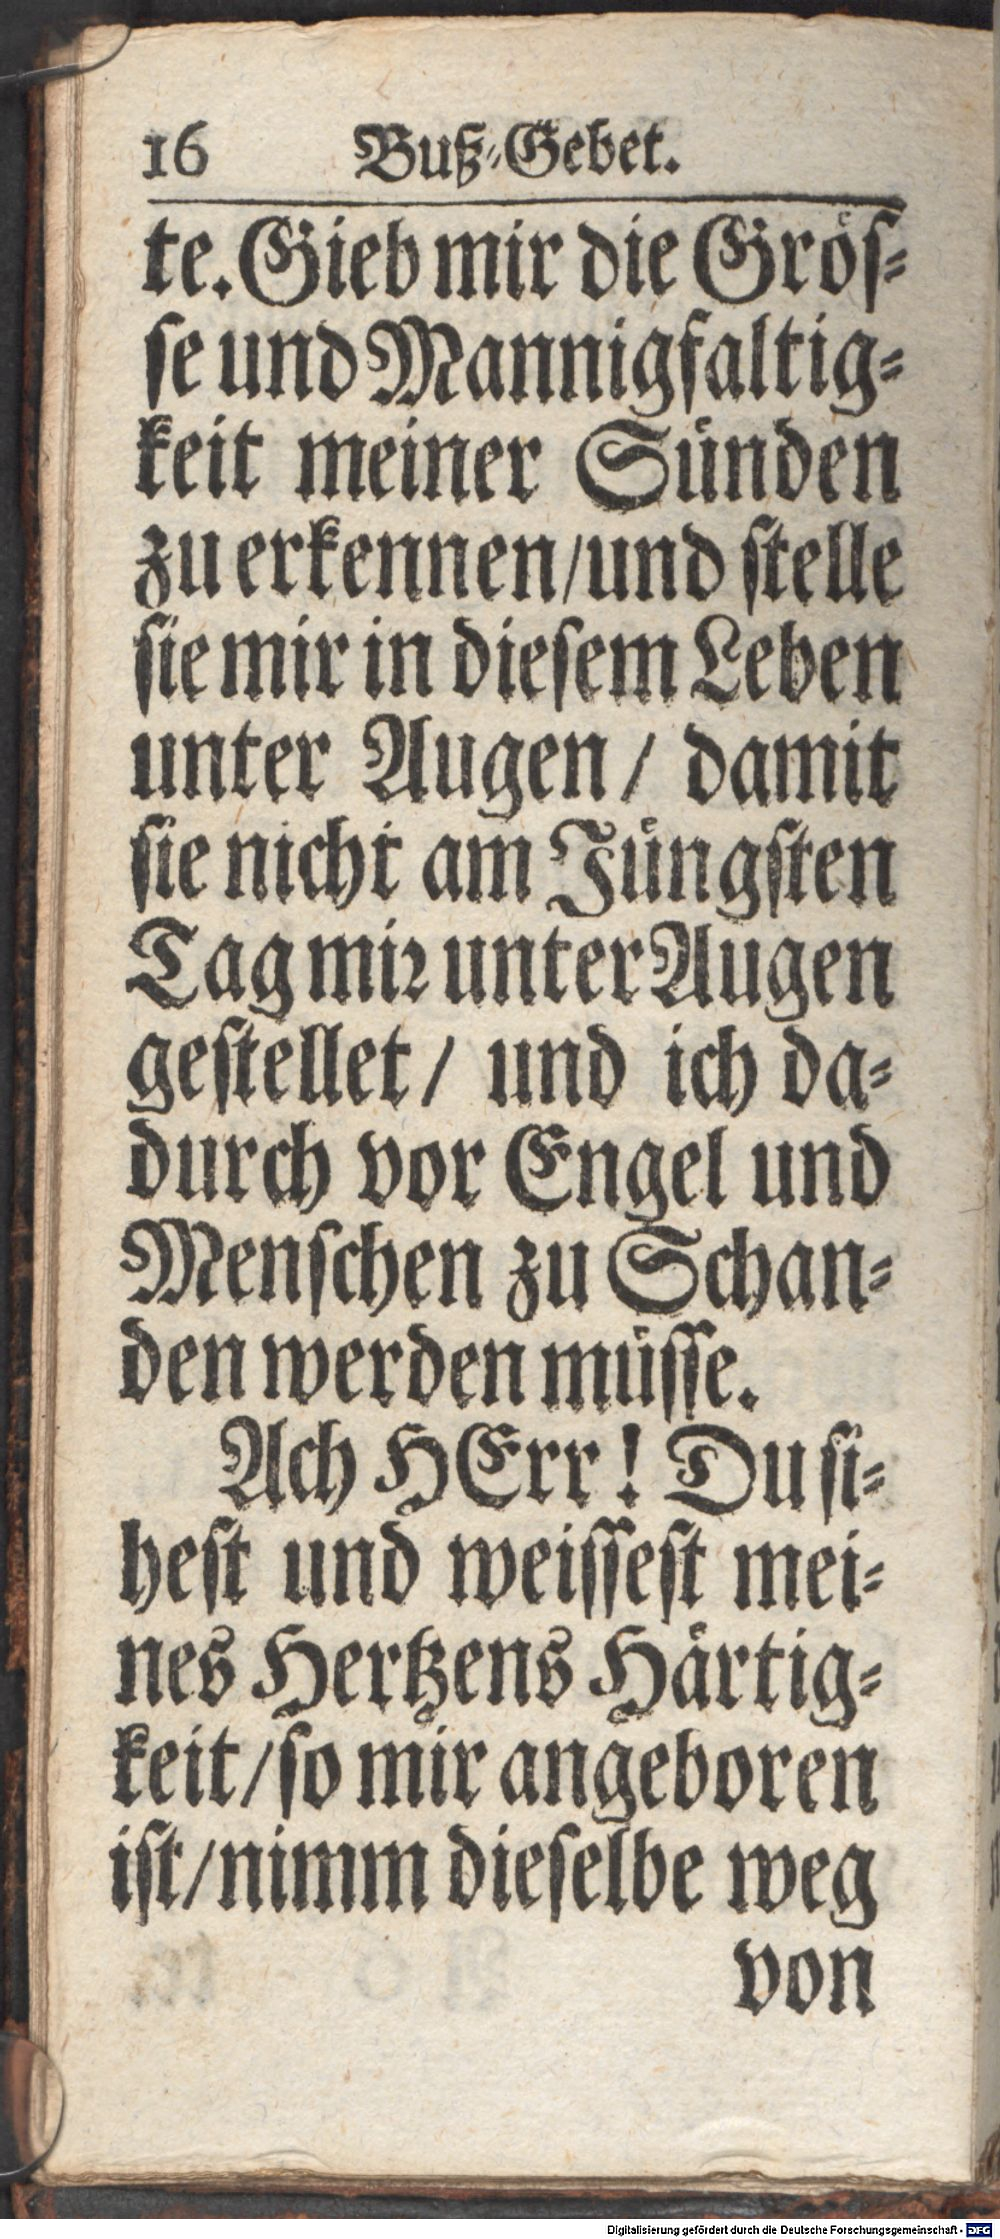 16 Buß-Gebet.
te. Gieb mir die Grös-
se und Mannigfaltig-
keit meiner Sünden
zu erkennen/ und stelle
sie mir in diesem Leben
unter Augen/ damit
sie nicht am Jüngsten
Tag mir unter Augen
gestellet/ und ich da-
durch vor Engel und
Menschen zu Schan-
den werden müsse.
Ach HErr! Du si-
hest und weissest mei-
nes Hertzens Härtig-
keit/ so mir angeboren
ist/ nimm dieselbe weg
von
Digitalisierung gefördert durch die Deutsche Forschungsgemeinschaft - DFG